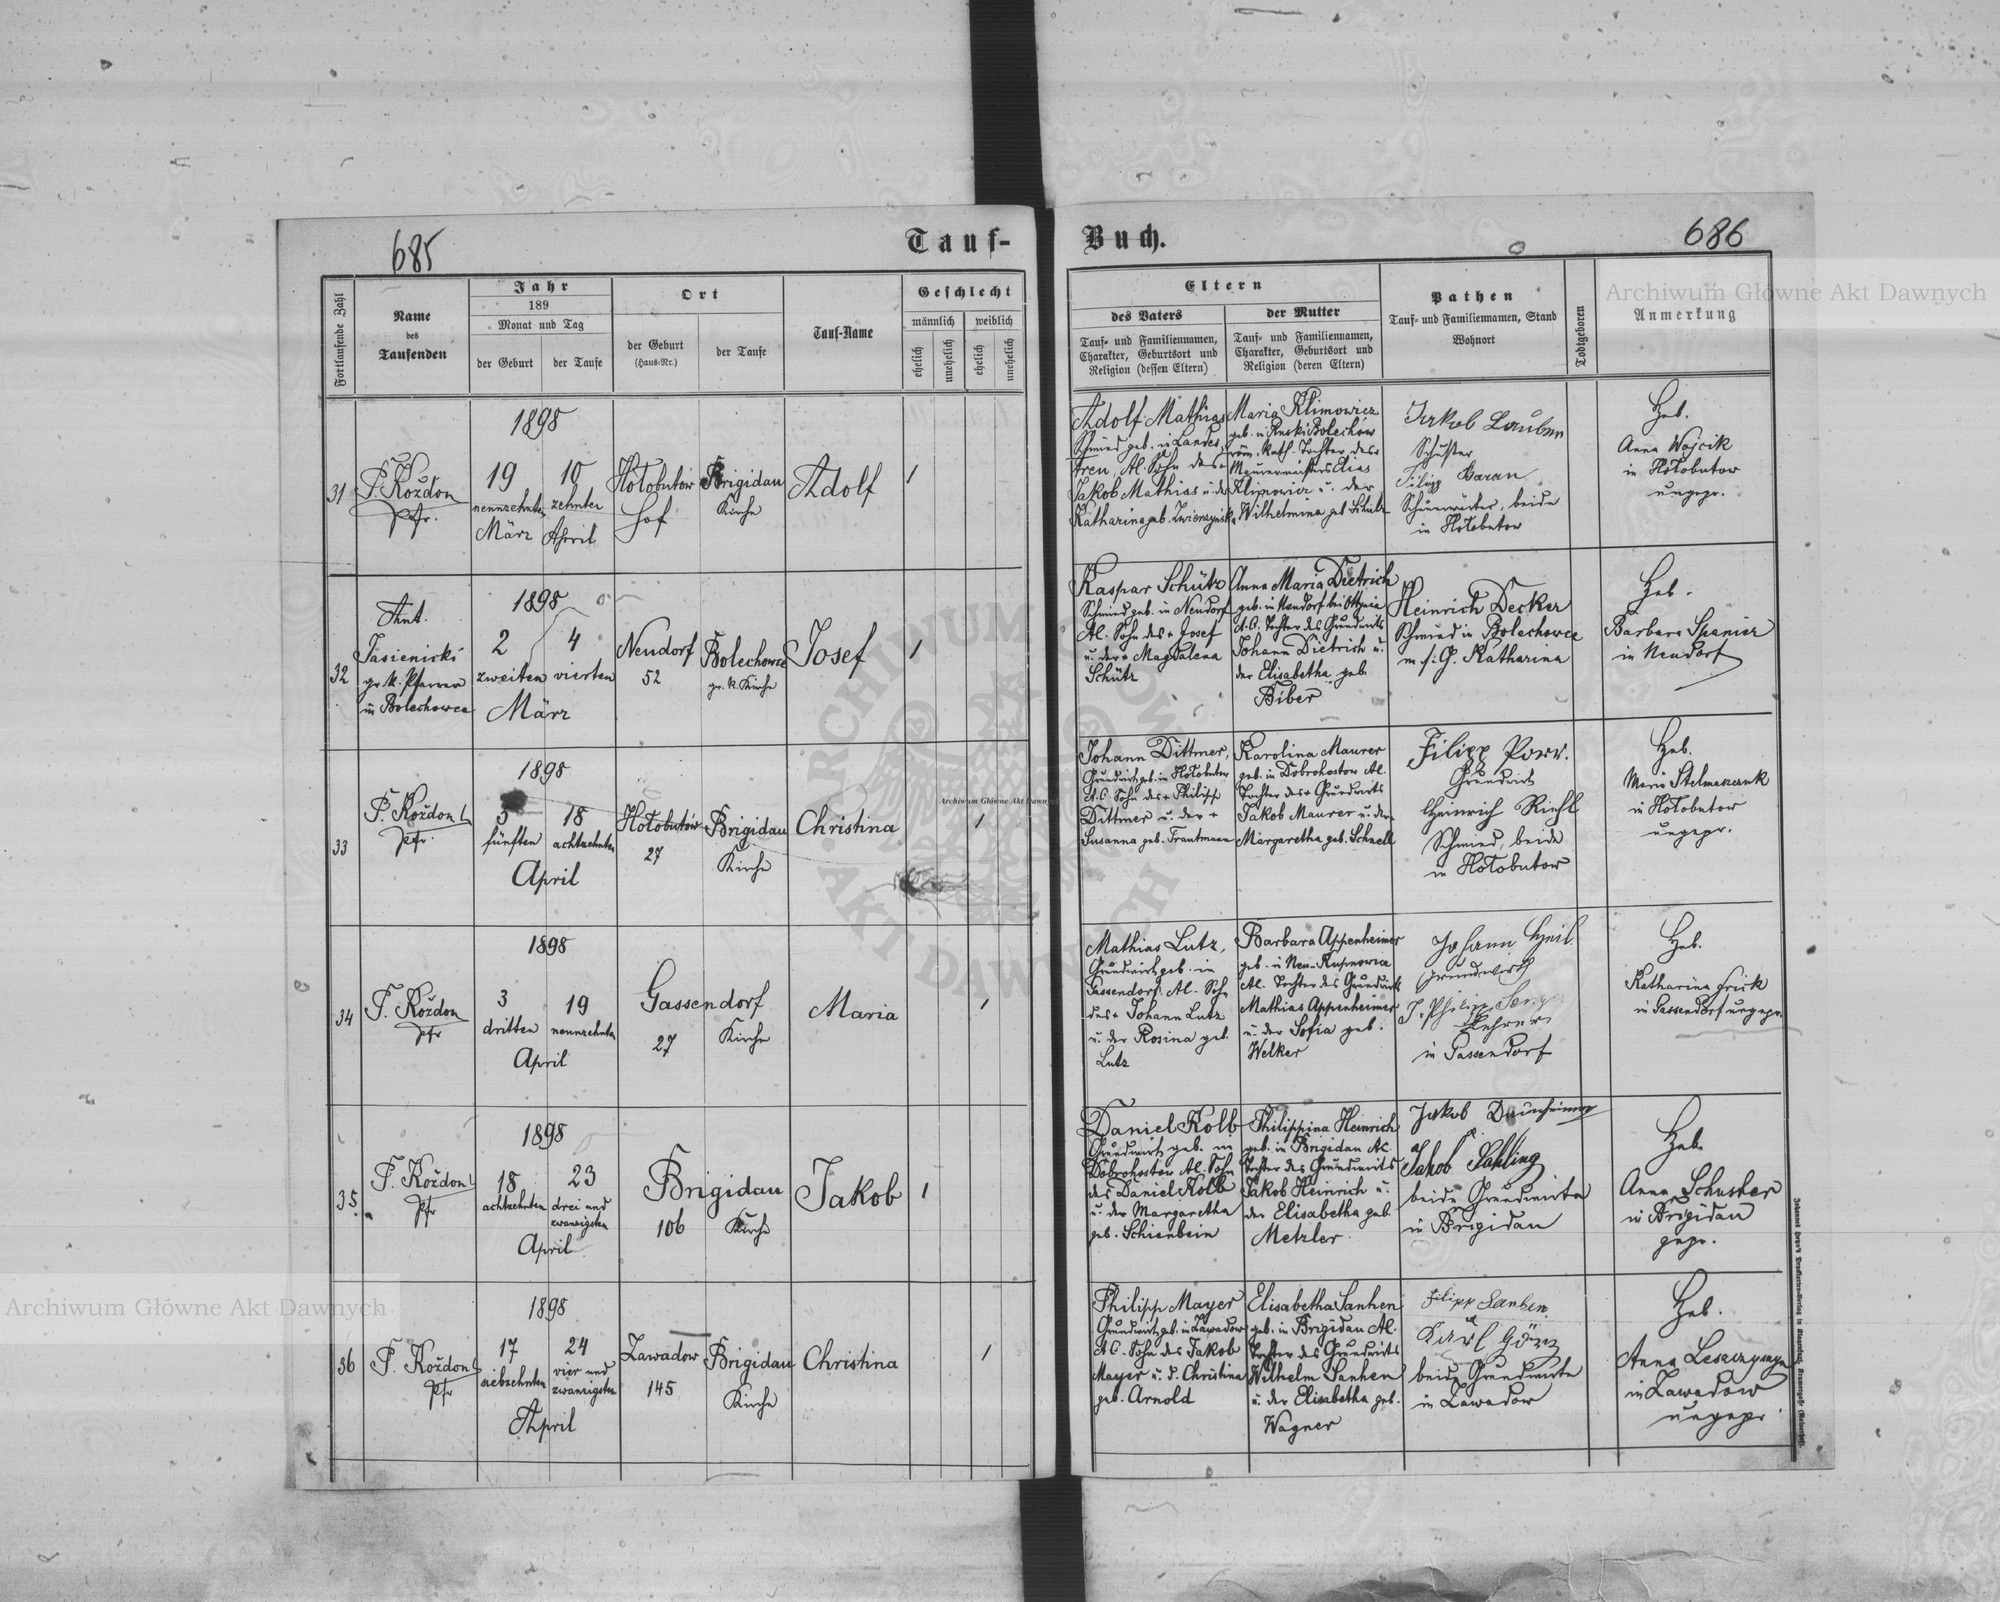 685
Tauf-
Fortlaufende Zahl
Name
des
Taufenden
Jahr
189
Monat und Tag
der Geburt
der Taufe
Ort
der Geburt
(Haus-Nr.)
der Taufe
Tauf-Name
Geschlecht
männlich
weiblich
ehelich
unehelich
ehelich
unehelich
31
F. Kożdon
Pfr.
1898
19
neunzehnten
März
10
zehnten
April
Hołobutów
Hof
Brigidau
Kirche
Adolf
1
32
Ant.
Jasienicki
gr. k. Pfarrer
in Bolechowce
1898
2
zweiten
4
vierten
März
Neudorf
52
Bolechowce
gr. k. Kirche
Josef
1
33
F. Kożdon
Pfr.
1898
5
fünften
18
achtzehnten
April
Hołobutów
27
Brigidau
Kirche
Christina
1
34
F. Kożdon
Pfr
1898
3
dritten
19
neunzehnten
April
Gassendorf
27
Kirche
Maria
1
35.
F. Kożdon
Pfr
1898
18
achtzehnten
23
drei und
zwanzigsten
April
Brigidau
106
Kirche
Jakob
1
36
F. Kożdon
Pfr
1898
17
siebzehnten
24
vier und
zwanzigsten
April
Zawadow
145
Brigidau
Kirche
Christina
1
Buch.
686
Eltern
des Vaters
Tauf- und Familiennamen,
Charakter, Geburtsort und
Religion (dessen Eltern)
der Mutter
Tauf- und Familiennamen,
Charakter, Geburtsort und
Religion (deren Eltern)
Pathen
Tauf- und Familiennamen, Stand
Wohnort
Todtgeboren
Archiwum Główne Akt Dawnych
Anmerkung
Adolf Mathias
Schmied geb. in Landes-
treu, Al. Sohn des +
Jakob Mathias u. der
Katharina geb.
Maria Klimowicz
geb. in Ruski Bolechów
röm. kath. Tochter des +
Maurermeisters Elias
Klimowicz u. der
Wilhelmina geb. Schulz
Jakob Lauben
Schuster
Filipp Baran
beide
in Hołobutow
Heb.
Anna Wojcik
in Hołobutow
ungepr.
Kaspar Schütz
Schmied geb. in Neudorf
Al. Sohn des + Josef
u. der + Magdalena
Schütz
Anna Maria Dietrich
geb. in Neudorf bei Ottynia
A.C. Tochter des Grundwirts
Johann Dietrich u.
der Elisabetha geb.
Biber
Heinrich Decker
Schmied in Bolechowce
m. s. G. Katharina
Heb.
Barbara Spanier
in Neudorf
Johann Dittmer,
Grundwirt geb. in Hołobutow
A.C. Sohn des + Philipp
Dittmer u. der +
Susanna geb. Trautmann
Karolina Maurer
geb. in Dobrohostow Al.
Tochter des + Grundwirts
Jakob Maurer u. der
Margaretha geb. Schnell
Filipp Porr.
Grundwirt
Heinrich Riehl
Schmied, beide
in Hołobutow
Heb.
Maria Stelmaszczuk
in Hołobutow
ungepr.
Mathias Lutz,
Grundwirt geb. in
Gassendorf Al. Sohn
des + Johann Lutz
u. der Rosina geb.
Lutz
Barbara Appenheimer
geb. in Neu-Kupnowice
Al. Tochter des Grundwirts
Mathias Appenheimer
u. der Sofia geb.
Welker
Johann Heil
Grundwirth
J. Philipp
Lehrer
in Gassendorf
Heb.
Katharina Frick
in Gassendorf ungepr.
Daniel Kolb
Grundwirt geb. in
Dobrohostow Al. Sohn
des Daniel Kolb
u. der Margaretha
geb. Schienbein
Philippina Heinrich
geb. in Brigidau AC
Tochter des Grundwirts
Jakob Heinrich u.
der Elisabetha geb.
Metzler
Jakob Daumheimer
u
Jakob Sahling
beide Grundwirte
in Brigidau
Heb.
Anna Schusher
in Brigidau
gepr.
Philipp Mayer
Grundwirt geb. in Zawadow
A.C. Sohn des Jakob
Mayer u. d. Christina
geb. Arnold
Elisabetha Sanhen
geb. in Brigidau Al.
Tochter des Grundwirts
Wilhelm Sanhen
u. der Elisabetha geb.
Wagner
Filipp Sanhen
u
Karl Görz
beide Grundwirte
in Zawadow
Heb.
Anna
in Zawadow
ungepr.
ARCHIWUM GŁÓWNE AKT DAWNYCH
Archiwum Główne Akt Dawnych
Archiwum Główne Akt Dawnych